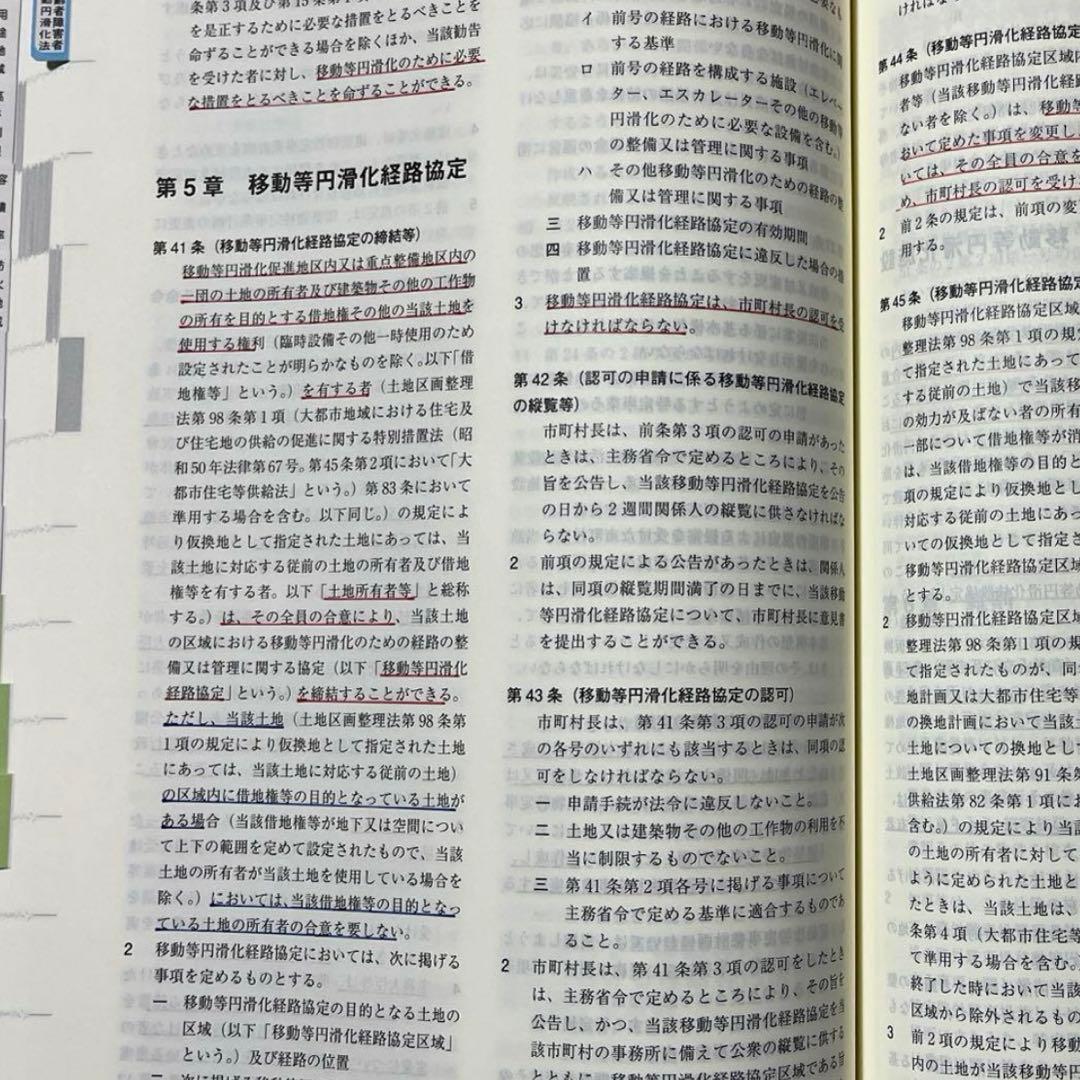 齢者障害者
動円滑化法
条第3項及び第15条第1
を是正するために必要な措置をとるべきことを
命ずることができる場合を除くほか、当該勧告
を受けた者に対し、移動等円滑化のために必要
な措置をとるべきことを命ずることができる。
第5章 移動等円滑化経路協定
第41条（移動等円滑化経路協定の締結等）
移動等円滑化促進地区内又は重点整備地区内の
一団の土地の所有者及び建築物その他の工作物
の所有を目的とする借地権その他の当該土地を
使用する権利（臨時設備その他一時使用のため
設定されたことが明らかなものを除く。以下「借
地権等」という。）を有する者（土地区画整理
法第98条第1項（大都市地域における住宅及
び住宅地の供給の促進に関する特別措置法（昭
和50年法律第67号。第45条第2項において「大
都市住宅等供給法」という。）第83条において
準用する場合を含む。以下同じ。）の規定によ
り仮換地として指定された土地にあっては、当
該土地に対応する従前の土地の所有者及び借地
権等を有する者。以下「土地所有者等」と総称
する。）は、その全員の合意により、当該土地
の区域における移動等円滑化のための経路の整
備又は管理に関する協定（以下「移動等円滑化
経路協定」という。）を締結することができる。
ただし、当該土地（土地区画整理法第98条第
1項の規定により仮換地として指定された土地
にあっては、当該土地に対応する従前の土地）
の区域内に借地権等の目的となっている土地が
ある場合（当該借地権等が地下又は空間につい
て上下の範囲を定めて設定されたもので、当該
土地の所有者が当該土地を使用している場合を
除く。）においては、当該借地権等の目的となっ
ている土地の所有者の合意を要しない。
2 移動等円滑化経路協定においては、次に掲げる
事項を定めるものとする。
一 移動等円滑化経路協定の目的となる土地の
区域（以下「移動等円滑化経路協定区域」
という。）及び経路の位置
イ 前号の経路における移動等円滑化に関
する基準
ロ 前号の経路を構成する施設（エレベー
ター、エスカレーターその他の移動等
円滑化のために必要な設備を含む。）
の整備又は管理に関する事項
ハ その他移動等円滑化のための経路の整
備又は管理に関する事項
三 移動等円滑化経路協定の有効期間
四 移動等円滑化経路協定に違反した場合の措
置
3 移動等円滑化経路協定は、市町村長の認可を受
けなければならない。
第42条（認可の申請に係る移動等円滑化経路協定
の縦覧等）
市町村長は、前条第3項の認可の申請があった
ときは、主務省令で定めるところにより、その
旨を公告し、当該移動等円滑化経路協定を公告
の日から2週間関係人の縦覧に供さなければな
らない。
2 前項の規定による公告があったときは、関係人
は、同項の縦覧期間満了の日までに、当該移動
等円滑化経路協定について、市町村長に意見書
を提出することができる。
第43条（移動等円滑化経路協定の認可）
市町村長は、第41条第3項の認可の申請が次
の各号のいずれにも該当するときは、同項の認
可をしなければならない。
一 申請手続が法令に違反しないこと。
二 土地又は建築物その他の工作物の利用を不
当に制限するものでないこと。
三 第41条第2項各号に掲げる事項について
主務省令で定める基準に適合するものであ
ること。
2 市町村長は、第41条第3項の認可をしたとき
は、主務省令で定めるところにより、その旨を
公告し、かつ、当該移動等円滑化経路協定を当
該市町村の事務所に備えて公衆の縦覧に供する
とともに、移動等円滑化経路協定区域である旨
ければな
第44条（移動等円滑化経路協定
移動等円滑化経路協定区域内
者等（当該移動等円滑化経路
ない者を除く。）は、移動等
おいて定めた事項を変更し
いては、その全員の合意を
め、市町村長の認可を受け
2 前2条の規定は、前項の変
用する。
第45条（移動等円滑化経路協定
移動等円滑化経路協定区域
整理法第98条第1項の規
て指定された土地にあって
する従前の土地）で当該移
の効力が及ばない者の所有
一部について借地権等が消
は、当該借地権等の目的と
項の規定により仮換地とし
対応する従前の土地にあっ
いての仮換地として指定さ
移動等円滑化経路協定区域
とする。
2 移動等円滑化経路協定区域
整理法第98条第1項の規
て指定されたものが、同
地計画又は大都市住宅等
の換地計画において当該
土地についての換地として
土地区画整理法第91条第
供給法第82条第1項にお
含む。）の規定により当該
の土地の所有者に対して
ように定められた土地と
たときは、当該土地は、
条第4項（大都市住宅等
て準用する場合を含む。
終了した時において当該
区域から除外されるもの
3 前2項の規定により移動
内の土地が当該移動等円